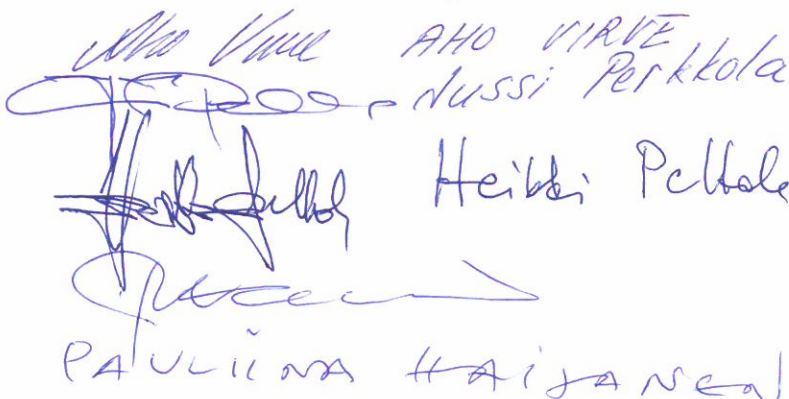 Aho Virve AHO VIRVE
Jussi Perkkola
Heikki Peltola
PAULIINA HAIJANEN